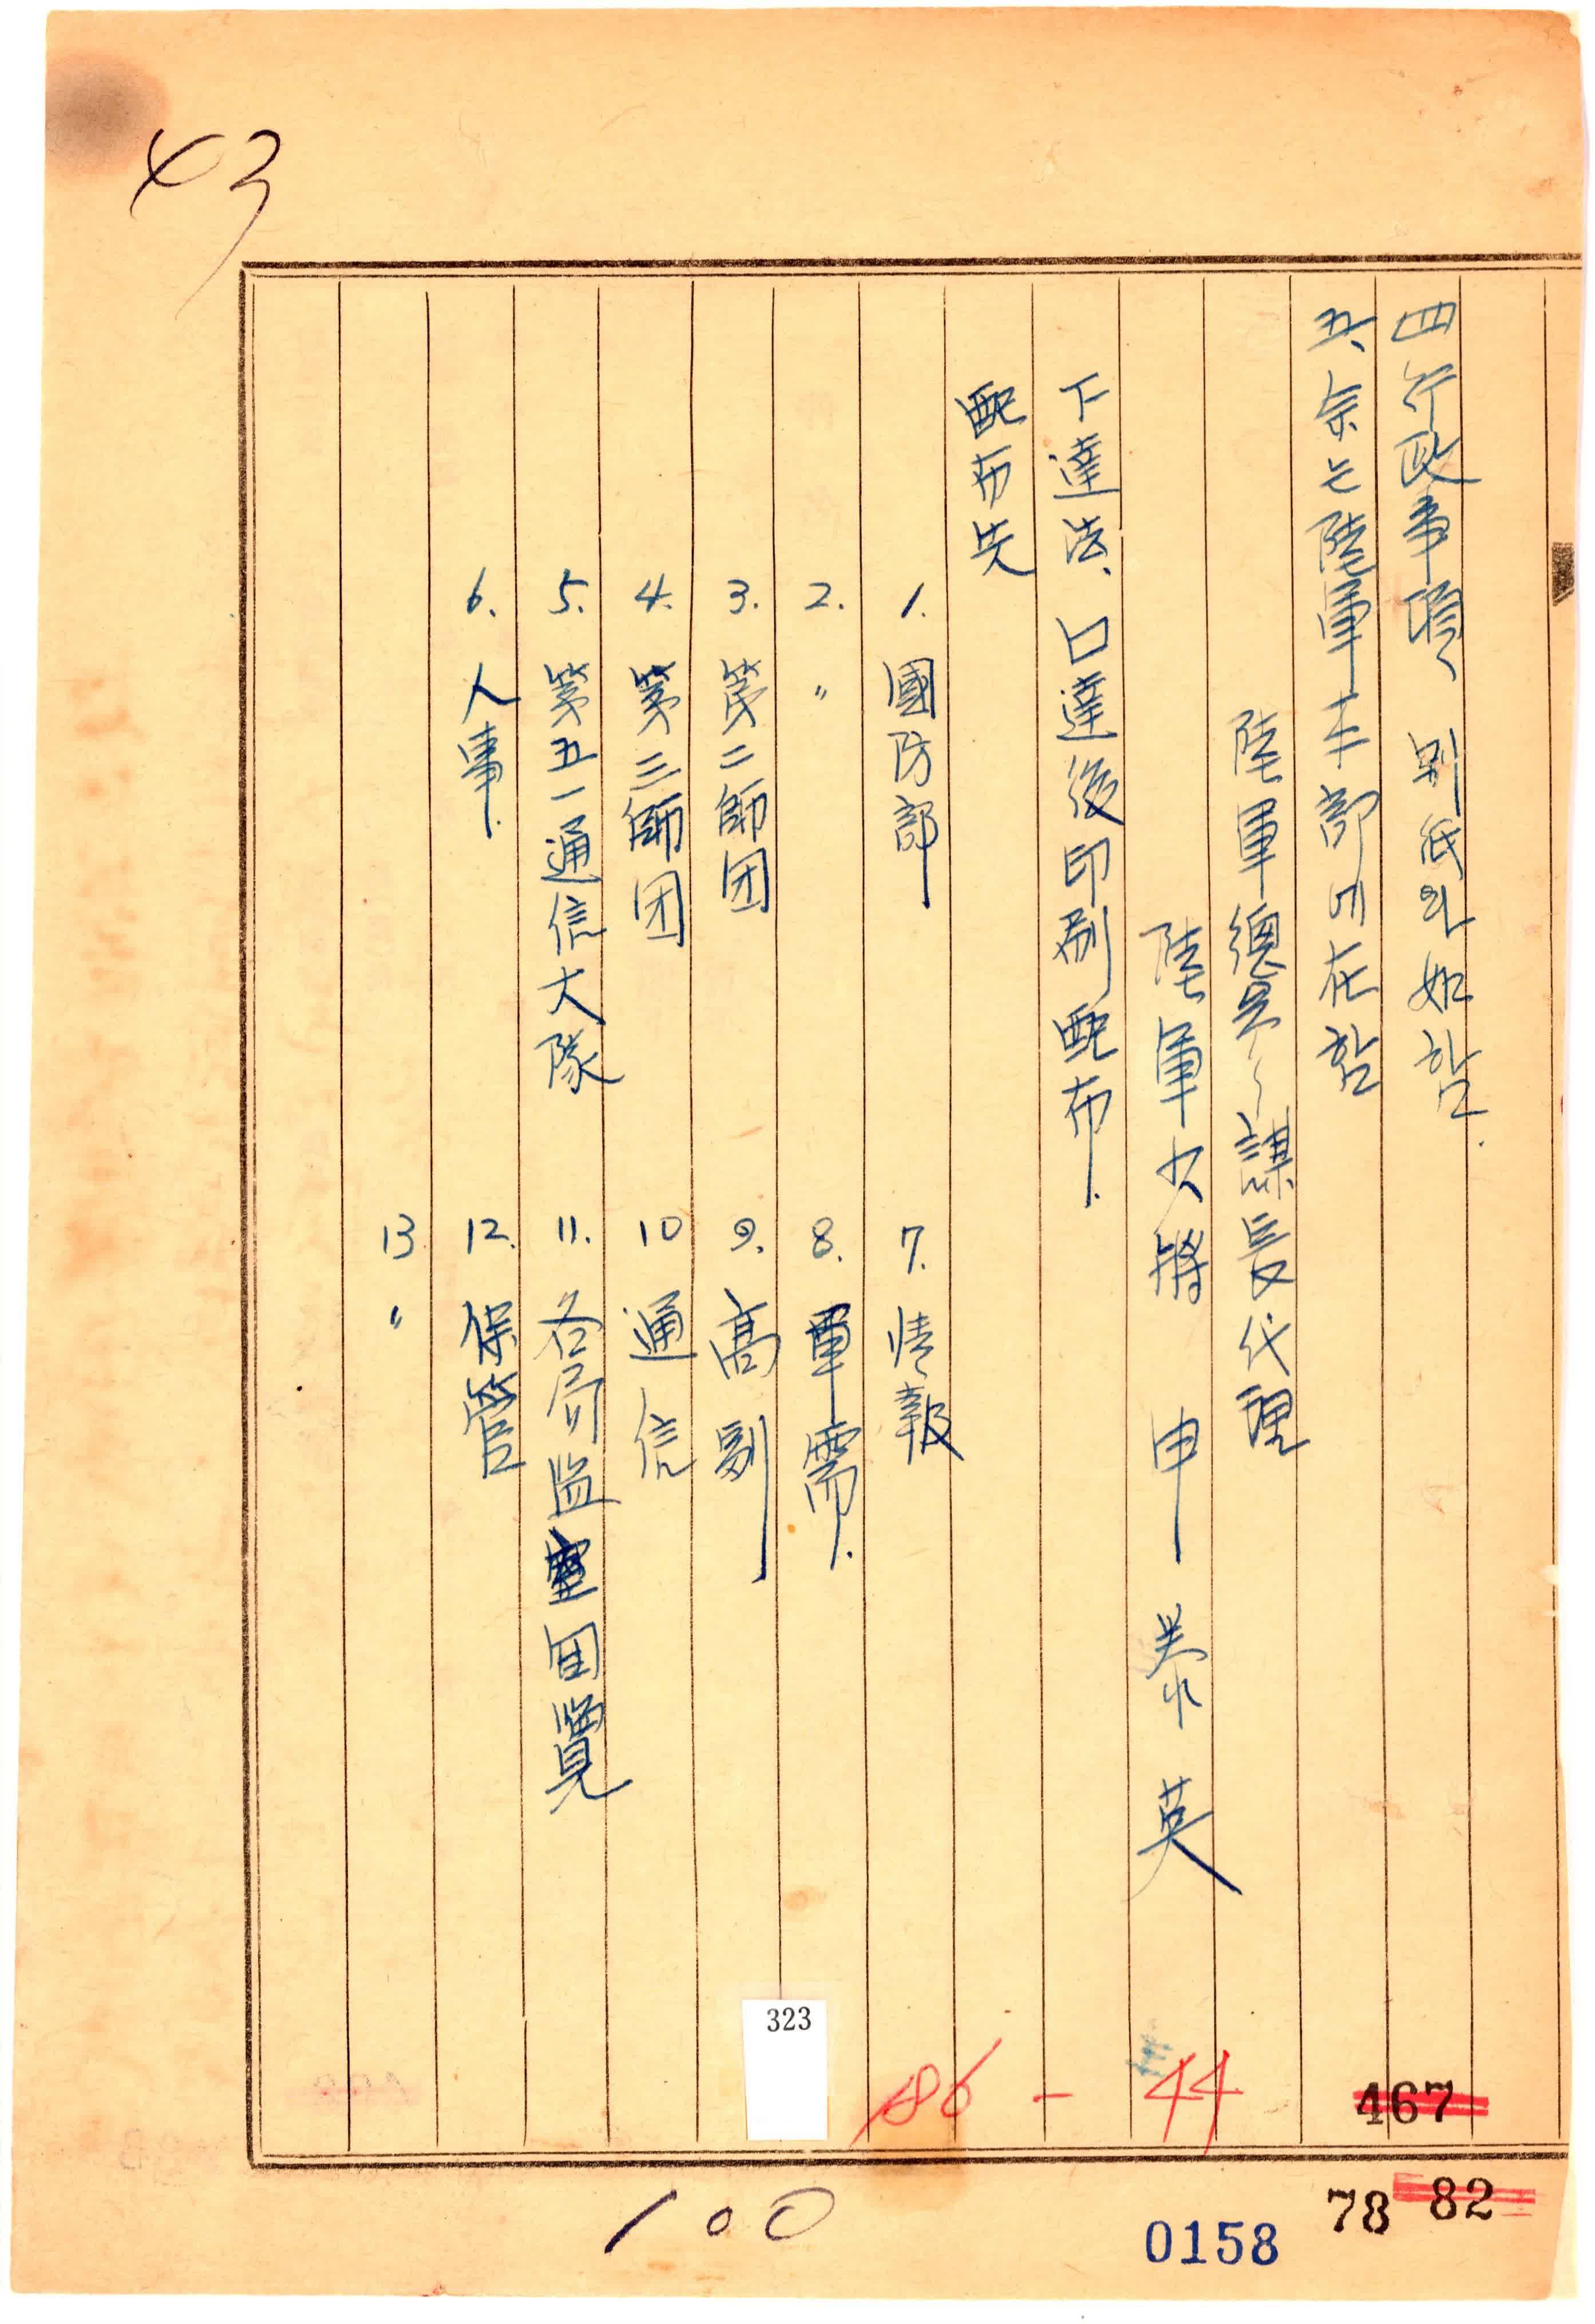 四、行政事項、別紙와 如함.
五、余는 陸軍本部에 在함
陸軍總參謀長代理
陸軍少將 申泰英
下達法、口達後印刷配布.
配布先
1. 國防部
2. 〃
3. 第二師团
4. 第三師团
5. 第五一通信大隊
6. 人事.
7. 情報
8. 軍需.
9. 高副
10 通信
11. 各局监室回覽
12. 保管
13 〃
43
323
186 - 44
467
78 82
0158
100